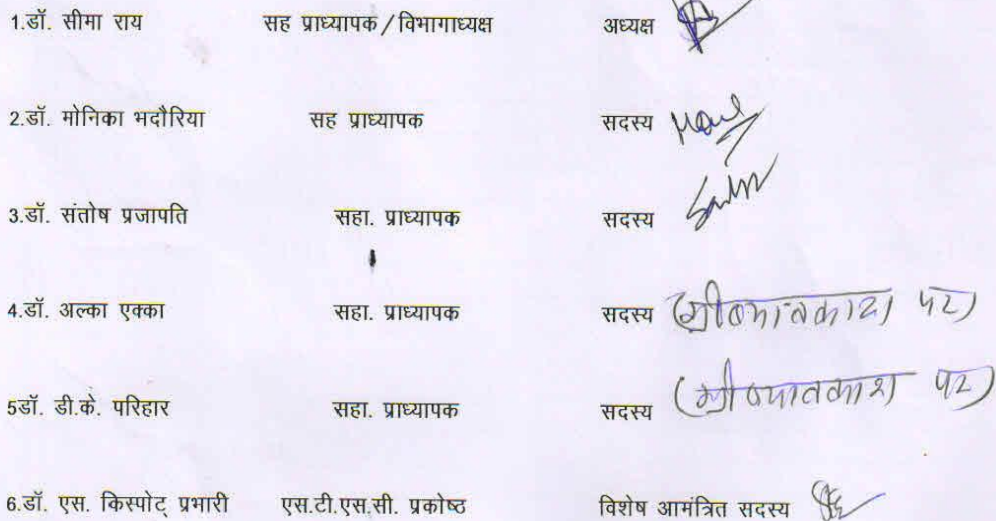 1.डॉ. सीमा राय सह प्राध्यापक/विभागाध्यक्ष अध्यक्ष
2.डॉ. मोनिका भदौरिया सह प्राध्यापक सदस्य
3.डॉ. संतोष प्रजापति सहा. प्राध्यापक सदस्य
4.डॉ. अल्का एक्का सहा. प्राध्यापक सदस्य (ग्रीष्मावकाश पर)
5डॉ. डी.के. परिहार सहा. प्राध्यापक सदस्य (ग्रीष्मावकाश पर)
6.डॉ. एस. किस्पोट् प्रभारी एस.टी.एस.सी. प्रकोष्ठ विशेष आमंत्रित सदस्य